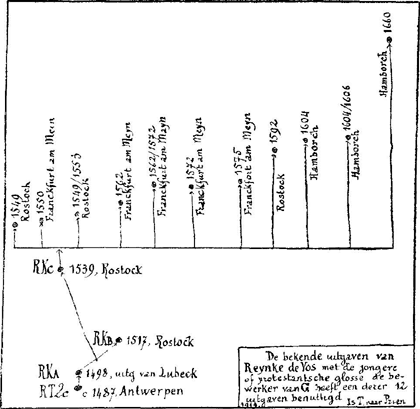 1660
Hamborch
1549
Rostoch
1550
Franckfurt am Meun
1549/1553
Rostock
1562
Franckfurt am Meyn
1562/1572
Franckfurt am Mayn
1572
Franckfurt am Meyn
1575
Franckfort am Meyn
1592
Rostock
1604
Hamborch
1604/1606
Hamborch
RKc 1539, Rostock
RKB 1517, Rostock
RKA 1498, uitg van Lubeck
RT2c 1487, Antwerpen
De bekende uitgaven van
Reynke de Vos met de jongere
of protestantsche glosse de be-
werker van G heeft een dezer 12
uitgaven benuttigd